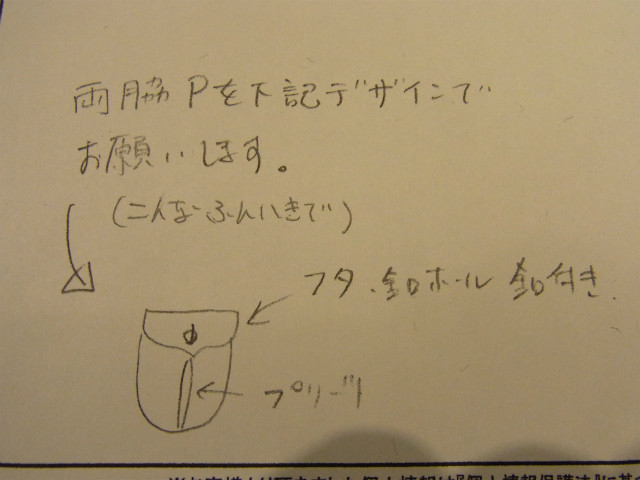 両脇Pを下記デザインで
お願いします。
(こんなふんいきで)
フタ、釦ホール 釦付き.
プリーツ